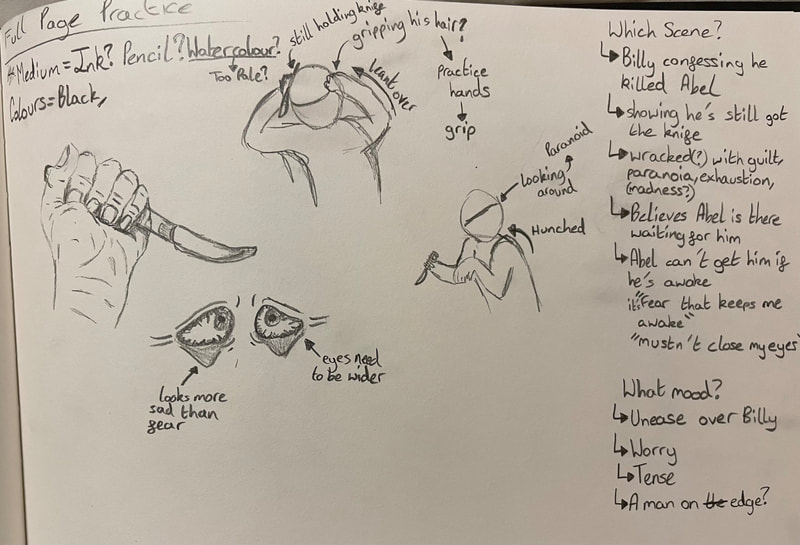 Full Page Practice
* Medium = Ink? Pencil? Watercolour?
Too Pale?
Colours = Black,
still holding knife
gripping his hair?
leant over
practice
hands
grip
Paranoid
Looking
around
Hunched
eyes need
to be wider
looks more
sad than
fear
Which Scene?
Billy confessing he
killed Abel
showing he's still got
the knife
wracked(?) with guilt,
paranoia, exhaustion,
(madness?)
Believes Abel is there
waiting for him
Abel can't get him if
he's awake
it's "Fear that keeps me
awake"
"mustn't close my eyes"
What mood?
Unease over Billy
Worry
Tense
A man on the edge?